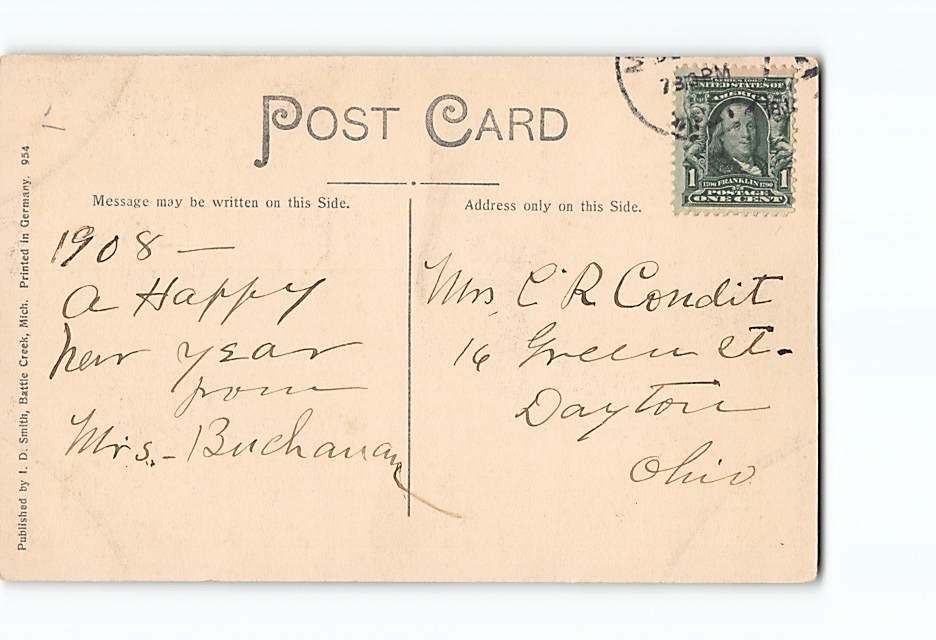 POST CARD
Message may be written on this Side.
Address only on this Side.
Published by I. D. Smith, Battle Creek, Mich. Printed in Germany. 954
1908 —
A Happy
New Year
from
Mrs. - Buchanan
730 PM
SERIES 1902
UNITED STATES OF
AMERICA
1 1
1706 FRANKLIN 1790
POSTAGE
ONE CENT
Mrs C R Condit
16 Green St.
Dayton
Ohio